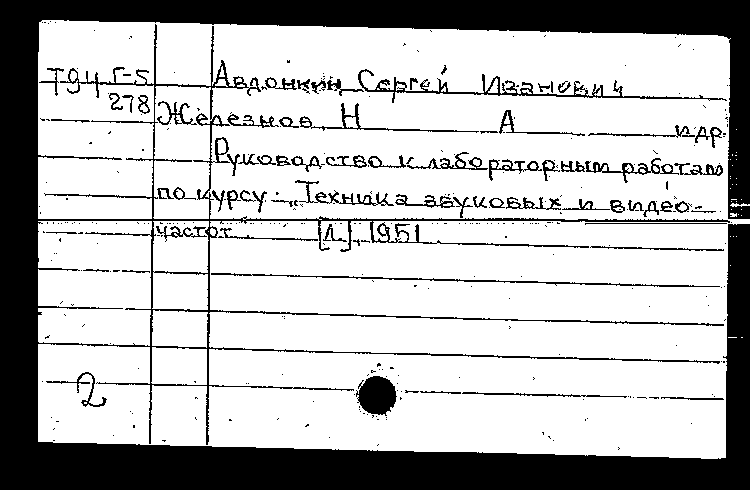 Т94 Г-5 Авдонкин, Сергей Иванович
278 Железнов, Н А и др
Руководство к лабораторным работам
по курсу: „Техника звуковых и видео-
частот". [Л.], 1951.
2